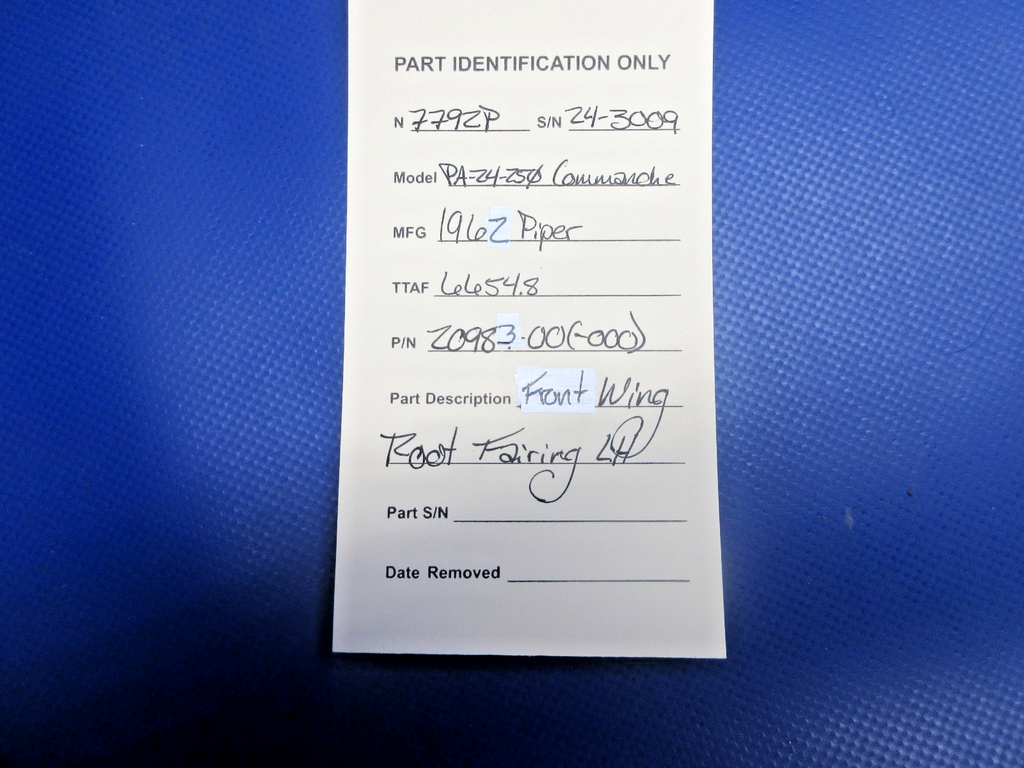 PART IDENTIFICATION ONLY
N 7792P S/N 24-3009
Model PA-24-250 Commanche
MFG 1962 Piper
TTAF 6654.8
P/N 20983-00(-000)
Part Description Front Wing
Root Fairing LH
Part S/N
Date Removed